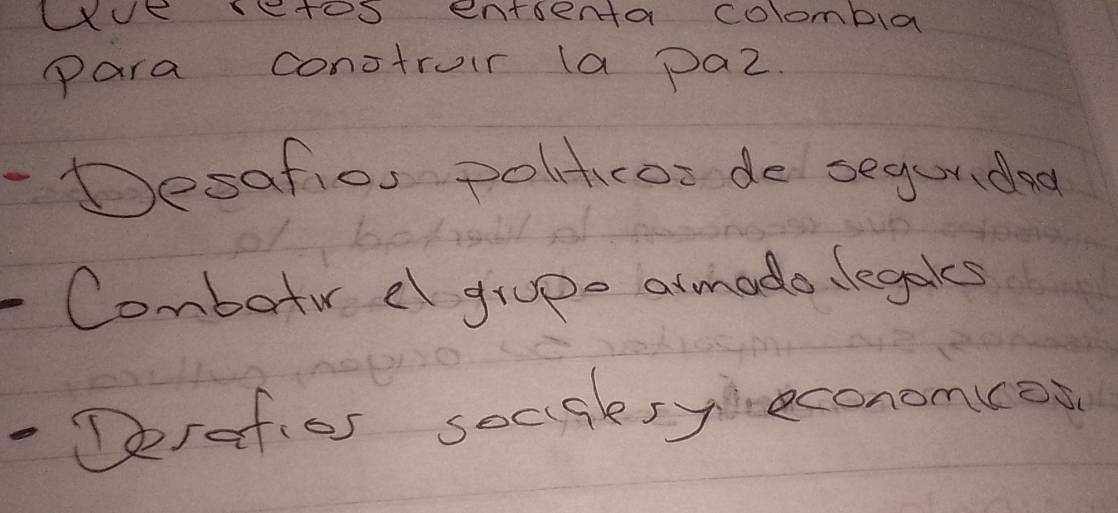 Que retos enfrenta colombia
para construir la paz.
- Desafios politicos de seguridad
- Combatir el grupo armado ilegales
- Desafios sociales y economicos.